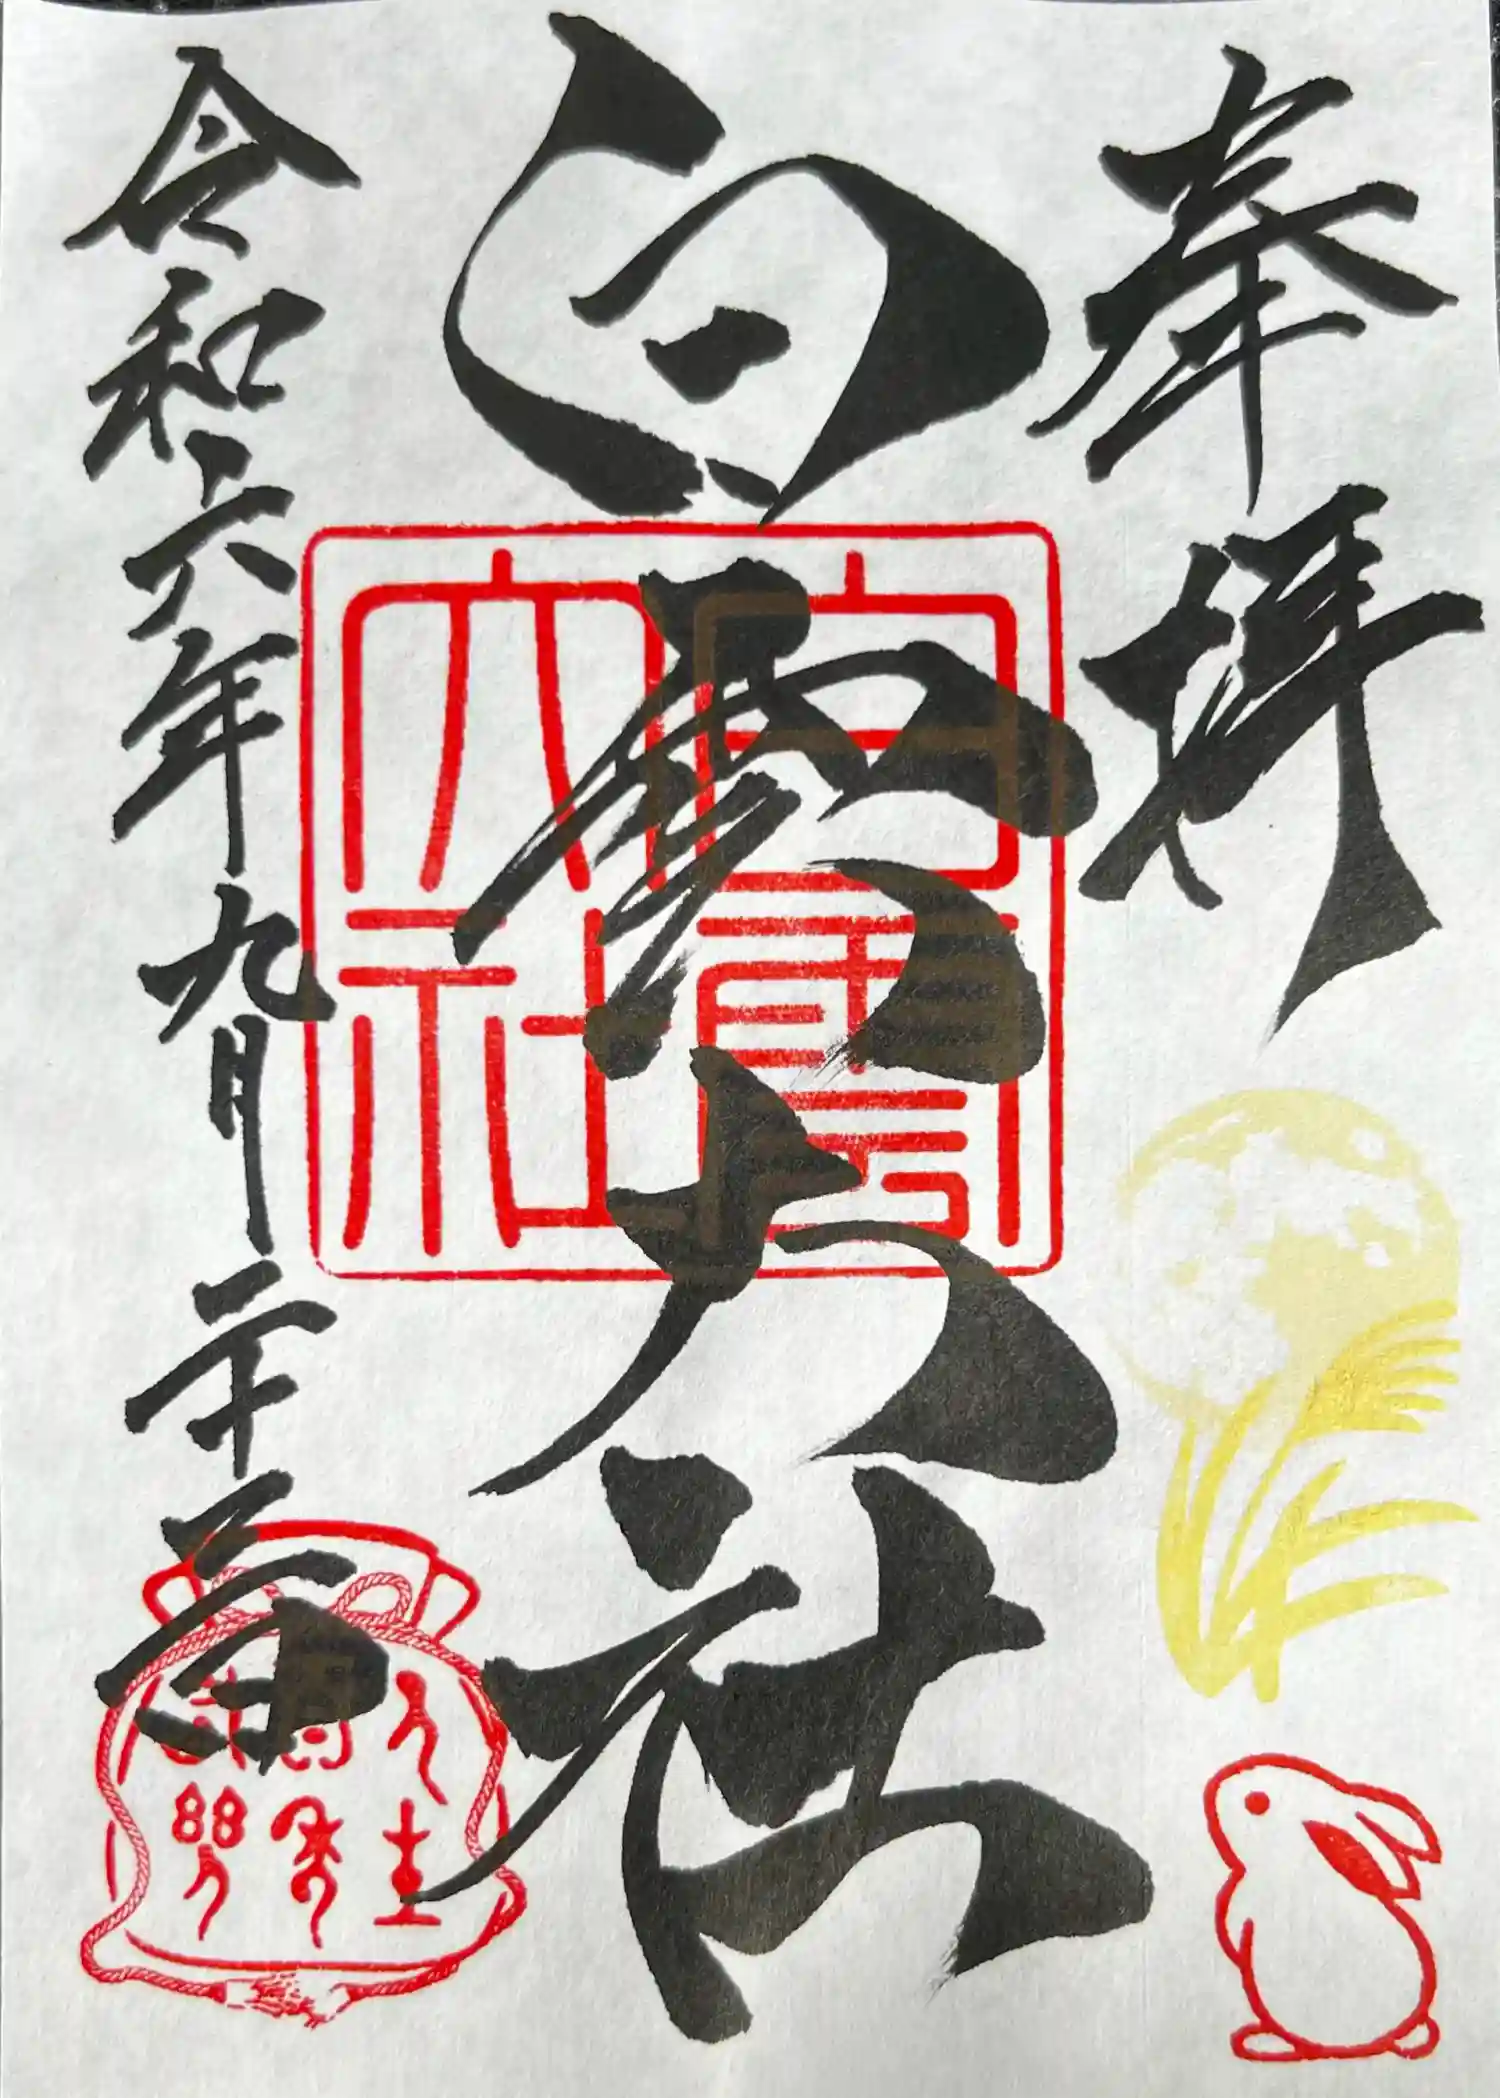 奉拝
白雲大社
令和六年九月二十三日
白雲大社